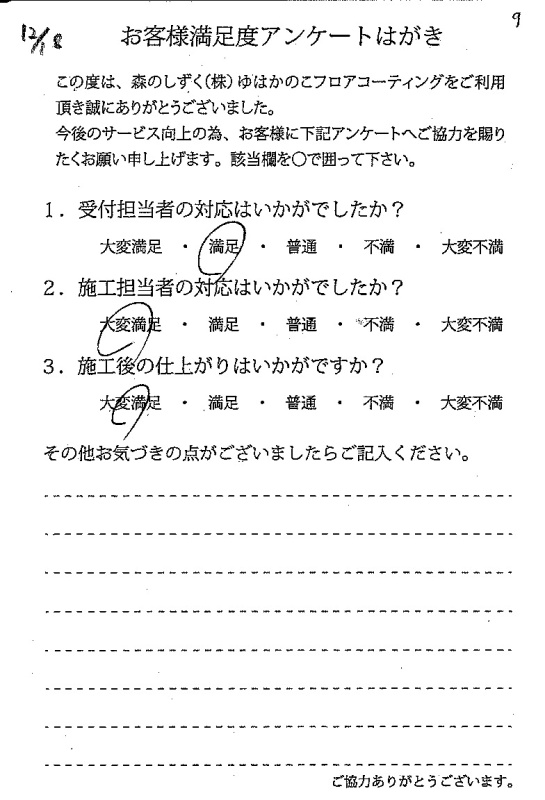 12/18
9
お客様満足度アンケートはがき
この度は、森のしずく(株)ゆはかのこフロアコーティングをご利用
頂き誠にありがとうございました。
今後のサービス向上の為、お客様に下記アンケートへご協力を賜り
たくお願い申し上げます。該当欄を〇で囲って下さい。
1．受付担当者の対応はいかがでしたか？
大変満足 ・ 満足 ・ 普通 ・ 不満 ・ 大変不満
2．施工担当者の対応はいかがでしたか？
大変満足 ・ 満足 ・ 普通 ・ 不満 ・ 大変不満
3．施工後の仕上がりはいかがですか？
大変満足 ・ 満足 ・ 普通 ・ 不満 ・ 大変不満
その他お気づきの点がございましたらご記入ください。
ご協力ありがとうございます。